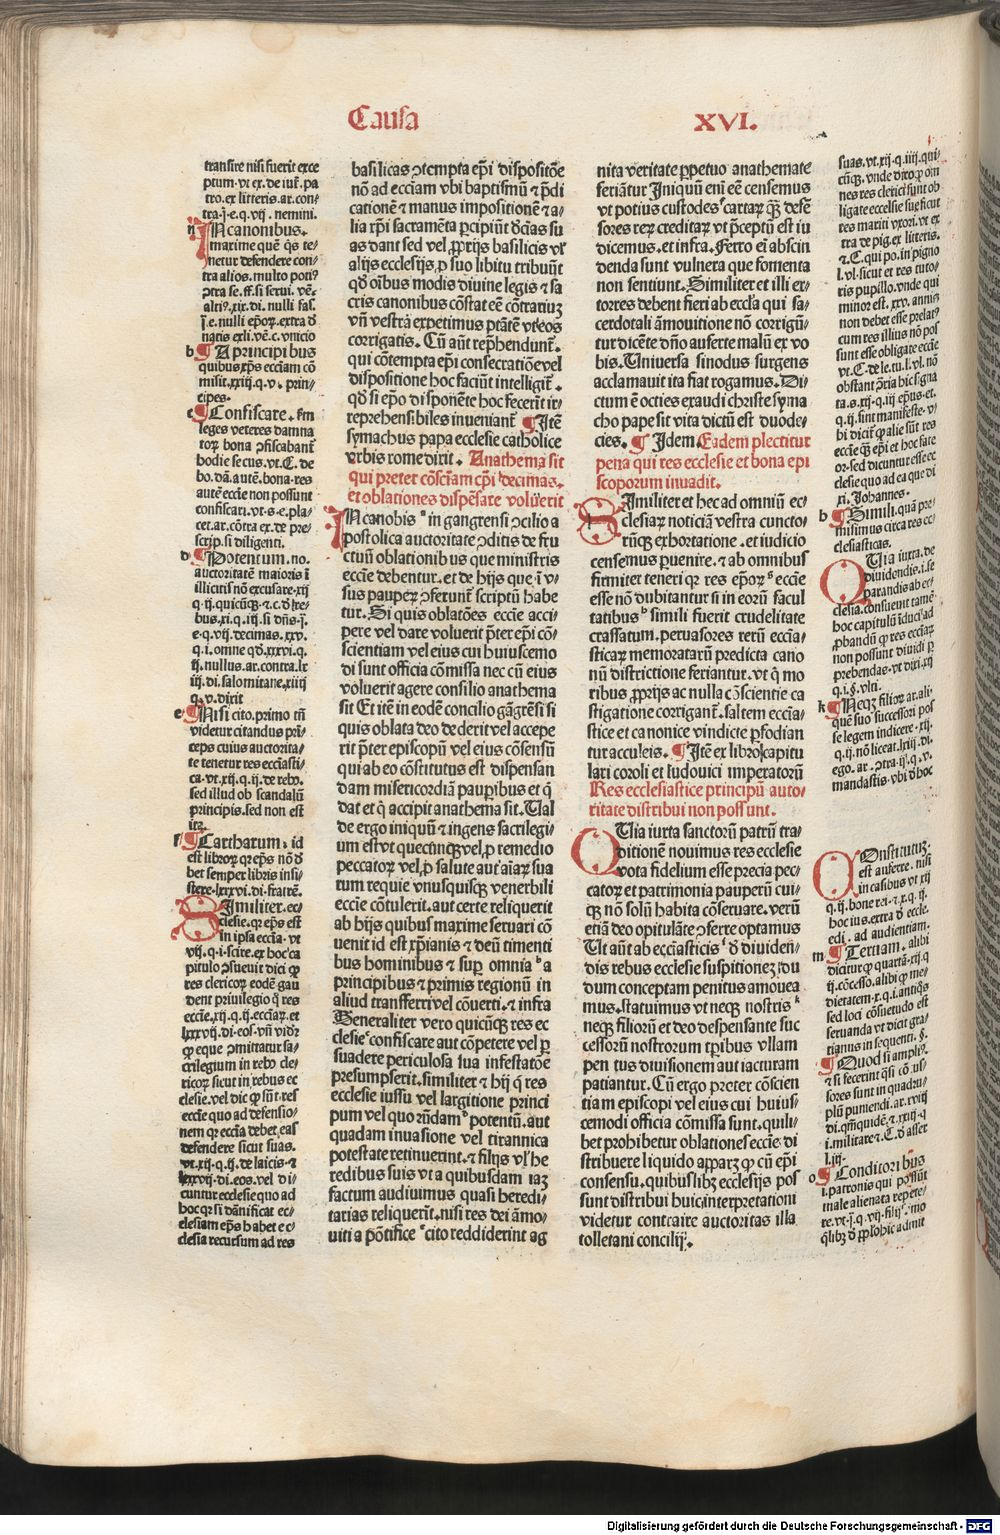 Causa
XVI.
transire nisi fuerit exce
ptum.vt ex.de iur̄.pa
tro.ex litteris.ar.con-
tra.j.e.q.vij.nemini.
n
In canonibus.
maxime quē q̄s te-
netur defendere con-
tra alios.multo poti9
b ¶ A principibus
quibus xp̄s ecciam cō
misit.xxiij.q.v.prin-
cipes.
c ¶ Confiscare.
leges veteres damna
toꝝ bona ↄfiscabant
hodie secus.vt.C.de
bo.dā.autē.bona.res
autē eccīe non possunt
confiscari.vt.s.e.pla-
cet.ar.cōtra ex.de pre-
scrip.si diligenti.
d ¶ Potentum.no.
auctoritatē maioris ī
illicitis nō excusare.xij
e ¶ Nisi cito.primo tn̄
videtur citandus pri-
ceps cuius auctorita-
te tenetur res ecciasti-
ca.vt.xij.q.ij.de reb9.
sed illud ob scandalū
principis.sed non est
ita.
f ¶ Cartharum.id
est libroꝝ qꝛ ep̄s nō d̄
bet semper libris insi-
stere.lxxxvi.di.fratrē.
Similiter.ec-
clesie.qꝛ ep̄s est
in ipsa eccīa.vt
vij.q.i.scire.ex hoc ca
pitulo ↄsueuit dici ꝙ
res clericoꝝ eodē gau
dent priuilegio q̄ res
eccīe.xij.q.ij.eccīaꝝ.et
lxxvij.di.eos.vn̄ vidr̄
ꝙ eque ↄmittatur sa-
crilegium in reb9 cle-
ricoꝝ sicut in rebus ec
clesie.vel dic ꝙ sūt res
eccīe quo ad defensio-
nem qꝛ eccīa debet eas
defendere sicut suas.
vt.xij.q.ij.de laicis.⁊
lxxvij.di.eos.vel di-
cuntur ecclesie quo ad
hoc qꝛ si dānificat ec-
clesiam ep̄s habet ec-
clesia recursum ad res
basilicas ↄtempta ep̄i dispositōe
nō ad ecciam vbi baptismū ⁊ p̄di
cationē ⁊ manus impositionē ⁊ a-
lia xp̄i sacramēta ꝑcipiūt d̄cias su
as dant sed vel ꝓprijs basilicis vl'
alijs ecclesijs ꝓ suo libitu tribuūt
qd̄ oībus modis diuine legis ⁊ sa
cris canonibus cōstat eē cōtrariuꝫ
vn̄ vestrā expetimus ptātē vt eos
corrigatis.Cū aūt rep̄hendunt̄.
qui cōtempta ep̄i consecratiōe vel
dispositione hoc faciūt intelligit̄.
qd̄ si ep̄o disponēte hoc fecerīt ir-
reprehensibiles inueniant̄ ¶ Itē
symachus papa ecclesie catholice
vrbis rome dixit. Anathema sit
qui preter cōsciam ep̄i decimas.
et oblationes dispēsate voluerit
In canobis in gangrensi ↄcilio a
postolica auctoritate ↄditis de fru
ctuū oblationibus que ministris
eccīe debentur.et de hijs que ī v-
sus pauperꝝ ↄferunt̄ scriptū habe
tur.Si quis oblatōes eccīe acci-
pere vel dare voluerit p̄ter ep̄i cō-
scientiam vel eius cui huiuscemo
di sunt officia cōmissa nec cū eius
voluerit agere consilio anathema
sit Et itē in eodē concilio gāgrēsi si
quis oblata deo dederit vel accepe
rit p̄ter episcopū vel eius cōsensū
qui ab eo cōstitutus est dispensan
dam misericordiā pauꝑibus et q̄
dat et q̄ accipit anathema sit.Ual
de ergo iniquū ⁊ ingens sacrilegi-
um est vt quecūqꝫ vel ꝓ remedio
peccatoꝝ vel ꝓ salute aut aīaꝝ sua
rum requie vnusquisqꝫ venerbili
eccīe cōtulerit.aut certe reliquerit
ab hijs quibus maxime seruari cō
uenit id est xp̄ianis ⁊ deū timenti
bus hominibus ⁊ suꝑ omnia a
principibus ⁊ primis regionū in
aliud transferri vel cōuerti.⁊ infra
Generaliter vero quicūqꝫ res ec
clesie confiscare aut cōpetere vel ꝑ
suadere periculosa sua infestatōe
presumpserit.similiter ⁊ hij q̄ res
ecclesie iussu vel largitione princi
pum vel quorūdam potentū.aut
quadam inuasione vel tirannica
potestate retinuerint.⁊ filijs vl' he
redibus suis vt a quibusdam iaꝫ
factum audiuimus quasi heredi-
tarias reliquerīt.nisi res dei āmo-
uiti a pōtifice cito reddiderint ag
nita veritate ꝑpetuo anathemate
feriātur Iniquū eni eē censemus
vt potius custodes cartaꝝ qꝫ defē
sores reꝝ credātur vt p̄ceptū est iu
dicemus.et infra.Ferro ei abscin
denda sunt vulnera que fomenta
non sentiunt.Similiter et illi ex-
torres debent fieri ab eccīa qui sa-
cerdotali āmouitione nō corrigū-
tur dicēte dn̄o auferte malū ex vo
bis.Uniuersa sinodus surgens
acclamauit ita fiat rogamus.Di
ctum ē octies exaudi christe syma
cho pape sit vita dictū est duode-
cies. ¶ Idem Eadem plectitur
pena qui res ecclesie et bona epi
scoporum inuadit.
Similiter et hec ad omniū ec-
clesiaꝝ noticiā vestra cuncto-
rūqꝫ exhortatione.et iudicio
censemus ꝑuenire.⁊ ab omnibus
firmiter teneri qꝛ res ep̄oꝝ eccīe
esse nō dubitantur si in eorū facul
tatibus simili fuerit crudelitate
crassatum.peruasores rerū eccīa-
sticaꝝ memoratarū predicta cano
nū districtione feriantur.vt q̄ mo
ribus ꝓprijs ac nulla cōscientie ca
stigatione corrigant̄.saltem eccīa-
stice et canonice vindicte ꝑfodian
tur acculeis. ¶ Itē ex libro capitu
lari caroli et ludouici imperatorū
Res ecclesiastice principū aucto-
ritate distribui non possunt.
Quia iuxta sanctorū patrū tra-
ditionē nouimus res ecclesie
vota fidelium esse precia pec-
catoꝝ et patrimonia pauperū cui-
qꝫ nō solū habita cōseruare.verū
etiā deo opitulāte ↄferre optamus
Ut aūt ab eccīasticis d̄ diuiden-
dis rebus ecclesie suspitionez du
dum conceptam penitus amouea
mus.statuimus vt neqꝫ nostris
neqꝫ filiorū et deo despensante suc
cessorū nostrorum tp̄ibus vllam
penitus diuisionem aut iacturam
patiantur.Cū ergo preter cōscien
tiam episcopi vel eius cui huius-
cemodi officia cōmissa sunt.quili-
bet prohibetur oblationes eccīe di
stribuere liquido apparꝫ ꝙ cū ep̄i
consensu.quibuslibꝫ ecclesijs pos
sunt distribui huic interpretationi
videtur contraire auctoritas illa
tolletani concilij.
suas.vt.xij.q.iiij.qui-
cūqꝫ.vnde dico ꝙ om
nes res clerici sunt ob
ligate ecclesie sicut
res mariti vxori.vt ex
tra de pig.ex litteris.
⁊.C.qui po.in pigno
l.vl.sicut et res tuto-
ris pupillo.vnde qui
minor est.xxv.annis
non debet esse prelat9
cum res illius nō pos
sunt esse obligate eccīe
vt.C.de le.tu.l.vl.nō
obstant ↄtraria hic signa
ta.s.xij.q.iij ep̄us.et.
q.ij.sint manifeste.
bi dicit̄ ꝙ alie sūt res
eccīe qꝫ ep̄i et hoc fate
or.sed dicuntur esse ec
clesie quo ad ea que di
xi.Johannes.
h ¶ Simili.quā pre-
misimus circa res ec-
clesiasticas.
Quia iuxta.de
diuidendis.i.se
parandis ab ec-
clesia.consueuit tamē
hoc capitulū īduci ad
ꝓbandū ꝙ res eccīaꝝ
non possunt diuidi ꝑ
prebendas.vt dixi.xij
q.i.§.vlti.
k ¶ Neqꝫ filioꝝ.ar.ali-
quē suo successori pos
se legem indicere.xij.
q.ij.nō liceat.lxiij.di.
ego.ar.ↄtra.ij.q.v.
mandastis.vbi d̄ hoc
Constitutuꝫ.
est auferre.nisi
in casibus vt xij
q.ij.bone rei.⁊.x.q.ij.
hoc ius.extra d̄ eccle.
edi.ad audientiam.
m ¶ Tertiam.alibi
dicitur ꝙ quartā.xij.q
ij.cōcesso.alibi ꝙ me-
dietatem.x.q.i.antiq̄s
sed loci cōsuetudo est
seruanda vt dicit gra-
tianus in sequenti.§.
¶ Quod si ampli9.
⁊ si fecerint q̄si cō us-
sores sunt in quadru-
plū puniendi.ar.xviij
di.qm̄ quidē.⁊.xxiij.q
i.militare ⁊.C.d̄ asses
l.iij.
o ¶ Conditoribus
i.patronis qui possūt
male alienata repete-
re.vt.j.q.vij.filijs.
Digitalisierung gefördert durch die Deutsche Forschungsgemeinschaft - DFG